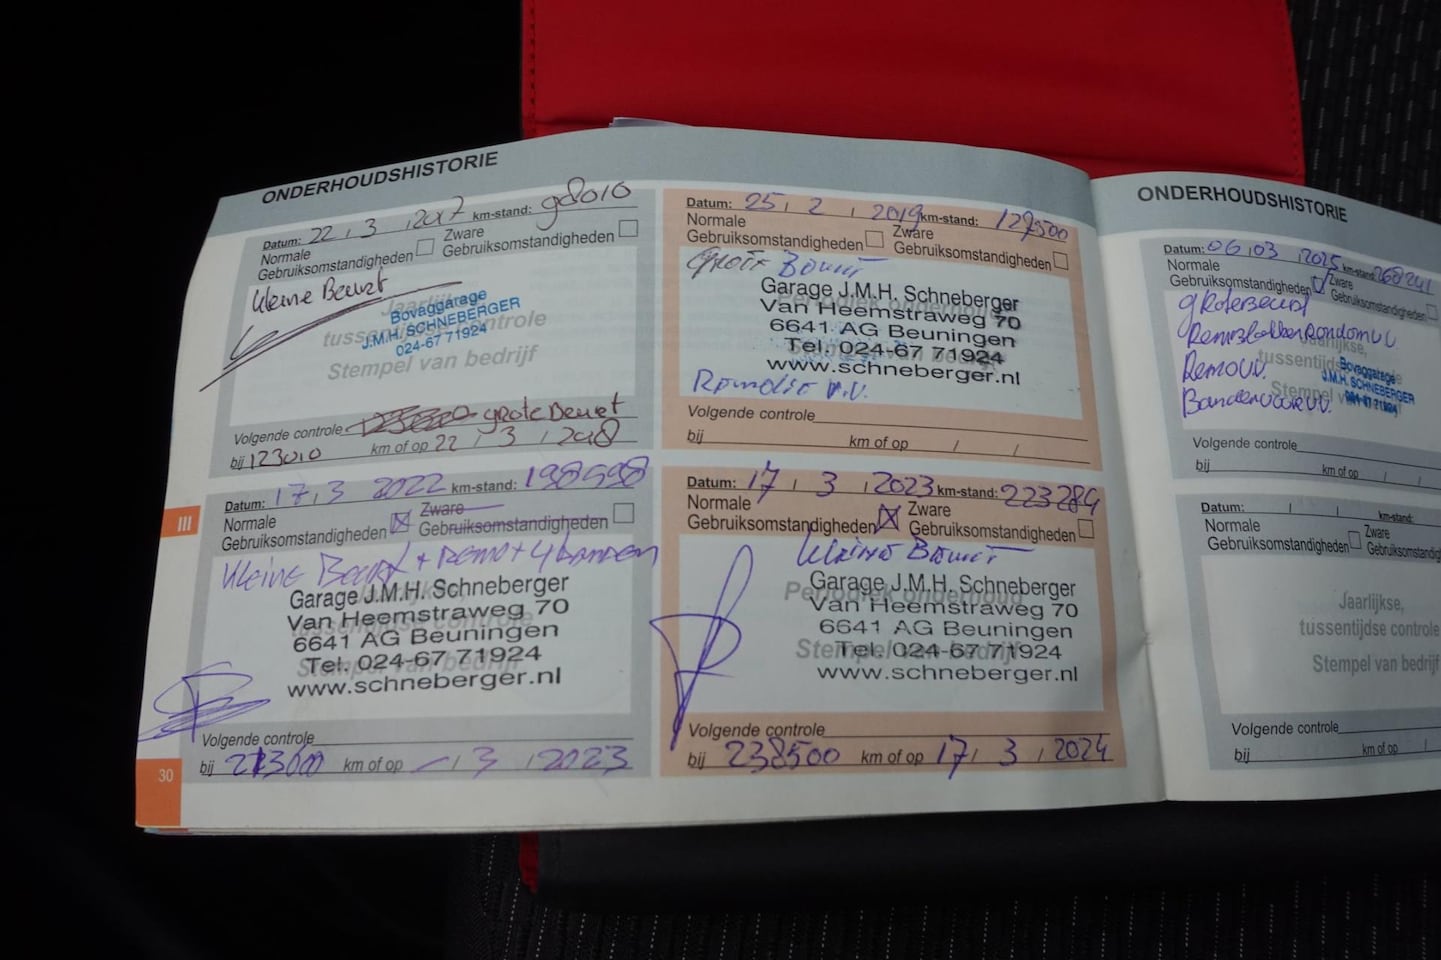 ONDERHOUDSHISTORIE
Datum: 22, 3, 2017 km-stand: 98010
Normale
Gebruiksomstandigheden
Zware
Gebruiksomstandigheden
kleine Beurt
Jaarlijkse,
tussentijdse controle
Stempel van bedrijf
Bovaggarage
J.M.H. SCHNEBERGER
024-67 71924
Volgende controle grote Beurt
bij 123010 km of op 22 / 3 / 2018
Datum: 25, 2, 2019 km-stand: 127500
Normale
Gebruiksomstandigheden
Zware
Gebruiksomstandigheden
Groot Beurt
Periodiek onderhoud
Garage J.M.H. Schneberger
Van Heemstraweg 70
6641 AG Beuningen
Tel. 024-67 71924
www.schneberger.nl
Volgende controle
bij km of op / /
III
Datum: 17, 3 2022 km-stand: 198598
Normale
Gebruiksomstandigheden
Zware
Gebruiksomstandigheden
Kleine Beurt + Remo + 4 banden
Garage J.M.H. Schneberger
Van Heemstraweg 70
6641 AG Beuningen
Tel. 024-67 71924
www.schneberger.nl
tussentijdse controle
Stempel van bedrijf
Volgende controle
bij 213600 km of op - / 3 / 2023
Datum: 17, 3, 2023 km-stand: 223284
Normale
Gebruiksomstandigheden
Zware
Gebruiksomstandigheden
kleine Beurt
Periodiek onderhoud
Garage J.M.H. Schneberger
Van Heemstraweg 70
6641 AG Beuningen
Tel. 024-67 71924
www.schneberger.nl
Stempel van bedrijf
Volgende controle
bij 238500 km of op 17 / 3 / 2024
30
ONDERHOUDSHISTORIE
Datum: 06, 03, 2025 km-stand: 268241
Normale
Gebruiksomstandigheden
Zware
Gebruiksomstandigheden
grote beurt
Remblokken Rondom vv
Remov.
Banden voor vv.
Jaarlijkse,
Bovaggarage
J.M.H. SCHNEBERGER
024-67 71924
Volgende controle
bij km of op / /
Datum: / / km-stand:
Normale
Gebruiksomstandigheden
Zware
Jaarlijkse,
tussentijdse controle
Stempel van bedrijf
Volgende controle
bij km of op /